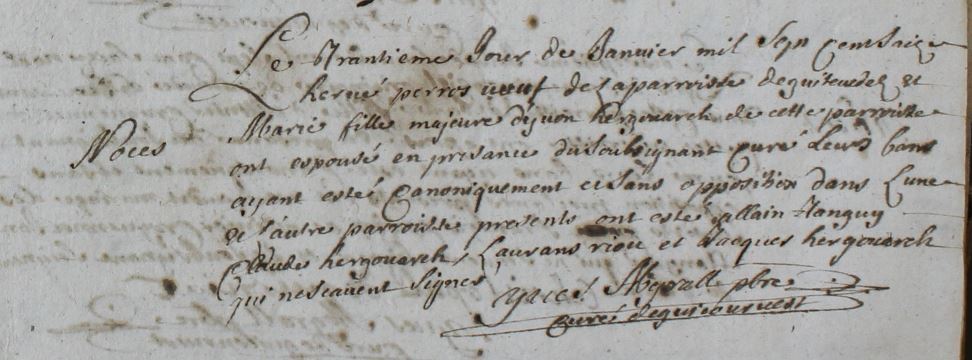 Le trantieme Jour de Janvier mil Sept Cent Saize
hervé perros veuf de la parroisse deguitevedez et
Marie fille majeure d'yvon hergouarch de cette parroisse
Noces
ont espousé en presance du Soubsignant Curé Leurs bans
ayant estés Canoniquement et Sans opposition dans Lune
et l'autre parroisse presents ont esté allain Tanguy
Claudes hergouarch, Laurans riou et Jacques hergouarch
qui ne scavent Signer
yues pbre
curé